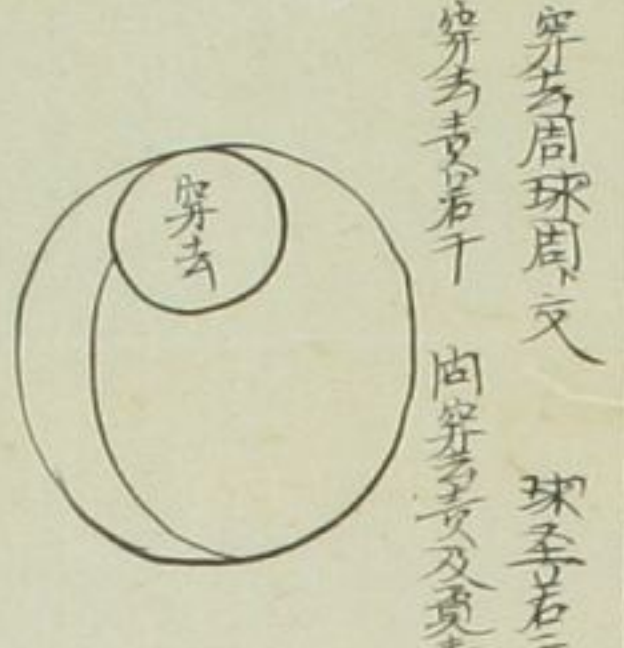 穿去周球周ト交 球至若干
穿去責若干 問穿去責及覓
穿去